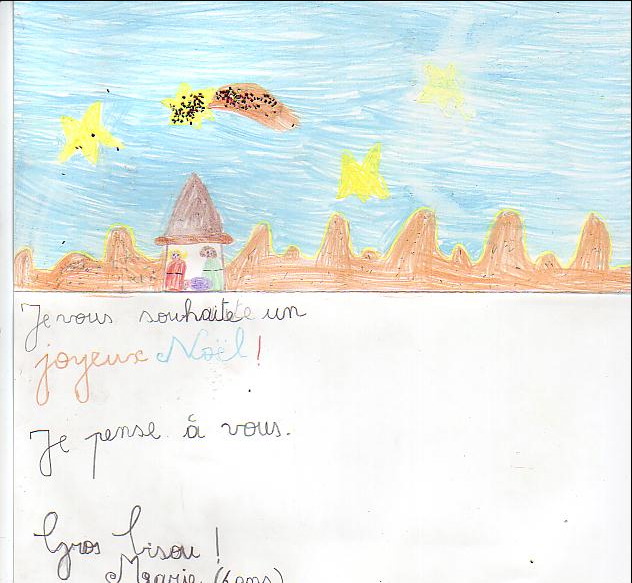 Je vous souhaite un
joyeux Noël !
Je pense à vous.
Gros bisou !
Marie